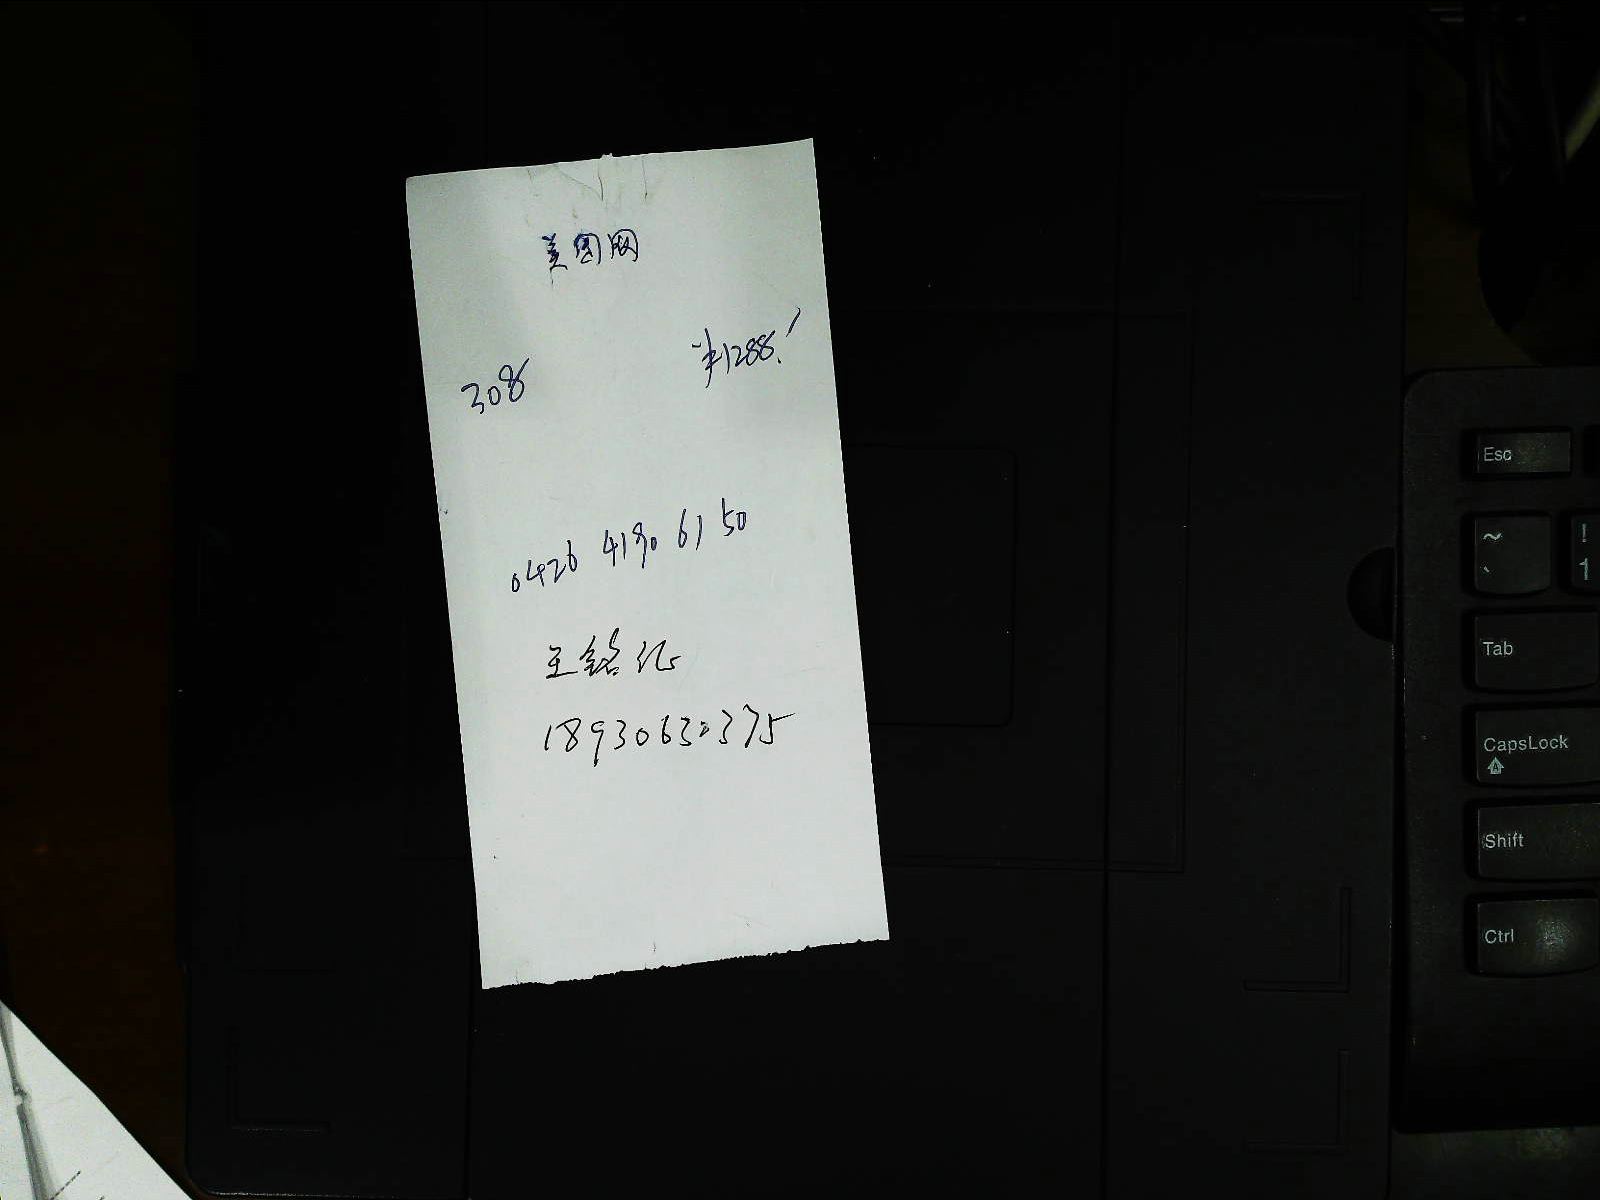 美团网
308 ¥1288.
0426 4190 6150
王铭
18930630375
Esc
~
`
!
1
Tab
CapsLock
A
Shift
Ctrl